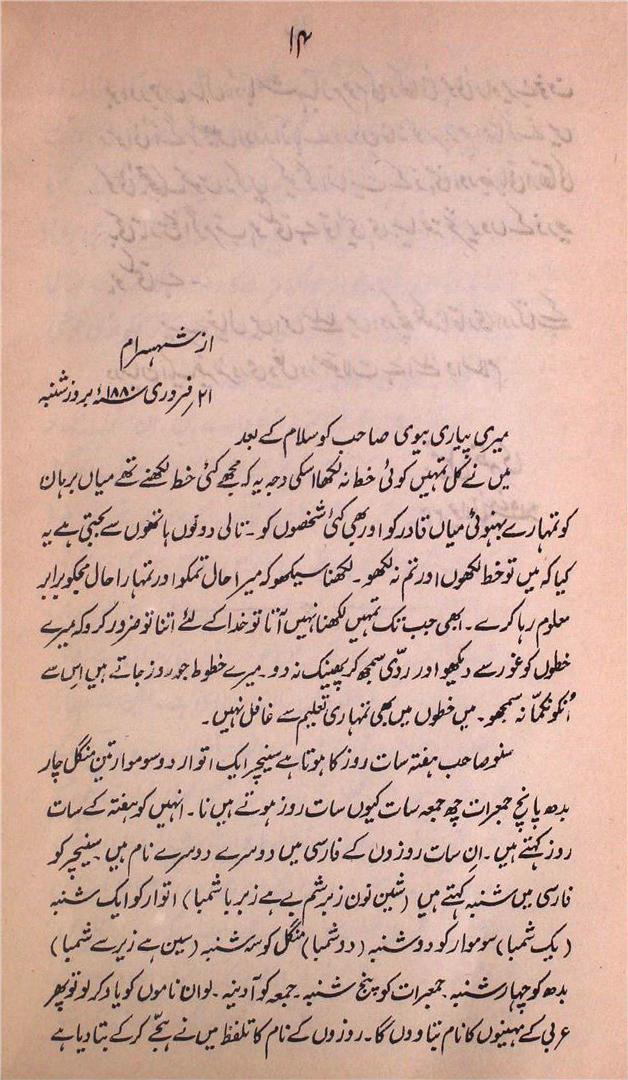 ۱۴
از شہسرام
۲۱؍ فروری ۱۸۸۰ء بروز شنبہ
میری پیاری بیوی صاحب کو سلام کے بعد
میں نے کل تمہیں کوئی خط نہ لکھا اسکی وجہ یہ کہ مجھے کئی خط لکھنے تھے میاں برہان
کو تمہارے بہنوئی میاں قادر کو اور بھی کئی شخصوں کو۔ تالی دونوں ہاتھوں سے بجتی ہے یہ
کیا کہ میں تو خط لکھوں اور تم نہ لکھو۔ لکھنا سیکھو کہ میرا حال تمکو اور تمہارا حال مجکو برابر
معلوم رہا کرے۔ ابھی جب تک تمہیں لکھنا نہیں آتا تو خدا کے لئے اتنا تو ضرور کرو کہ میرے
خطوں کو غور سے دیکھو اور ردّی سمجھ کر پھینک نہ دو۔ میرے خطوط جو روز جاتے ہیں اِس سے
اُنکو نکمّا نہ سمجھو۔ میں خطوں میں بھی تمہاری تعلیم سے غافل نہیں۔
سنو صاحب ہفتہ سات روز کا ہوتا ہے سنیچر ایک اتوار دو سوموار تین منگل چار
بدھ پانچ جمعرات چھ جمعہ سات کیوں سات روز ہوتے ہیں نا۔ انہیں کو ہفتہ کے سات
روز کہتے ہیں۔ اِن سات روزوں کے فارسی میں دوسرے دوسرے نام ہیں سنیچر کو
فارسی میں شنبہ کہتے ہیں (شین نون زبر شم بے ہے زبر با شمبا) اتوار کو ایک شنبہ
(یک شمبا) سوموار کو دو شنبہ (دو شمبا) منگل کو سہ شنبہ (سین ہے زیر سے شمبا)
بدھ کو چہار شنبہ۔ جمعرات کو پنج شنبہ۔ جمعہ کو آدینہ۔ لو ان ناموں کو یاد کر لو تو پھر
عربی کے مہینوں کا نام بتا ووں گا۔ روزوں کے نام کا تلفظ میں نے ہجّے کر کے بتا دیا ہے